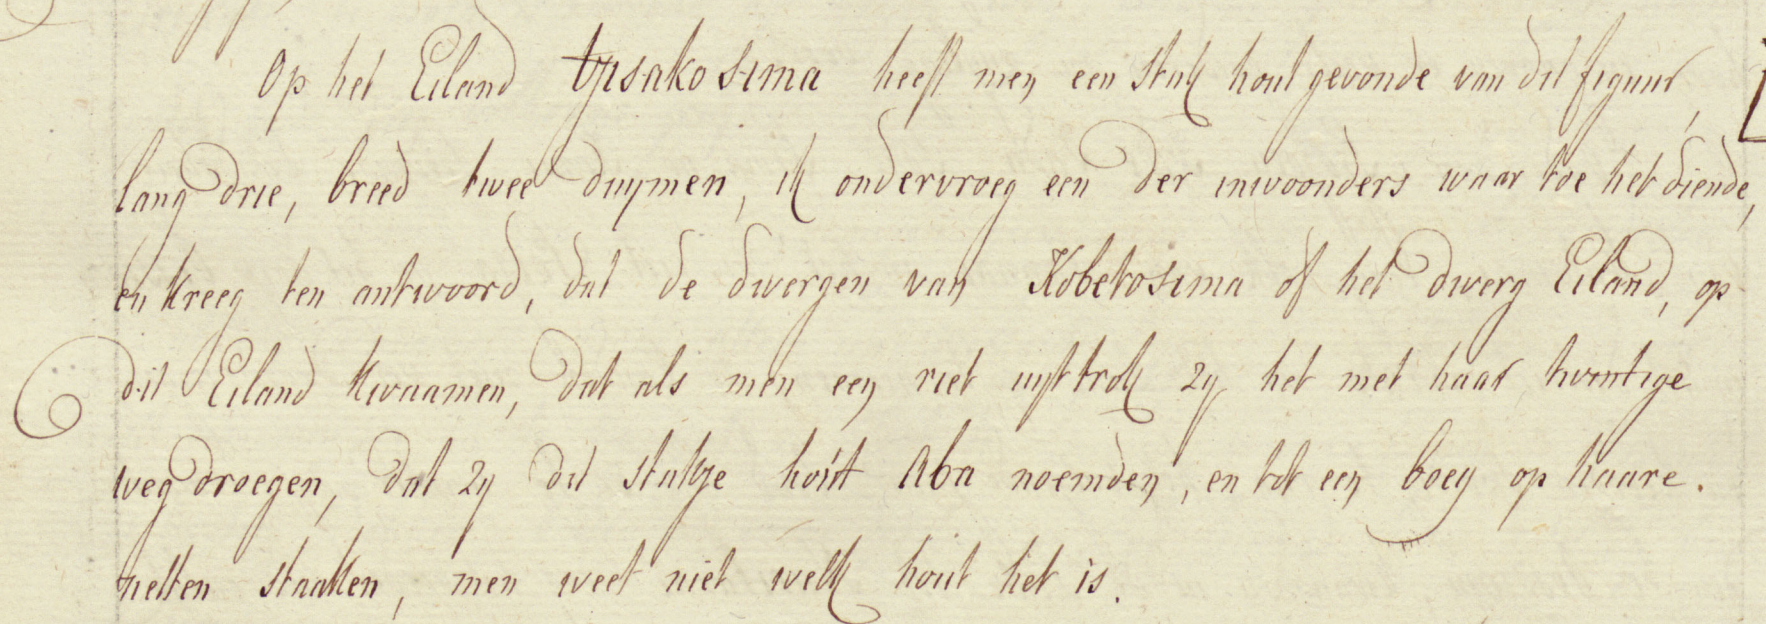 Op het Eiland tjisakosima heeft men een stuk hout gevonde van dit figuur,
lang drie, breed twee duymen, ik ondervroeg een der inwoonders waar toe het diende,
en kreeg ten antwoord, dat de dwergen van Kobetosima of het dwerg Eiland, op
dit Eiland kwaamen, dat als men een riet uyt trok zy het met haar twintige
weg droegen, dat zy dit stukje hout Aba noemden, en tot een boeg op haare.
netten staaken, men weet niet welk hout het is.